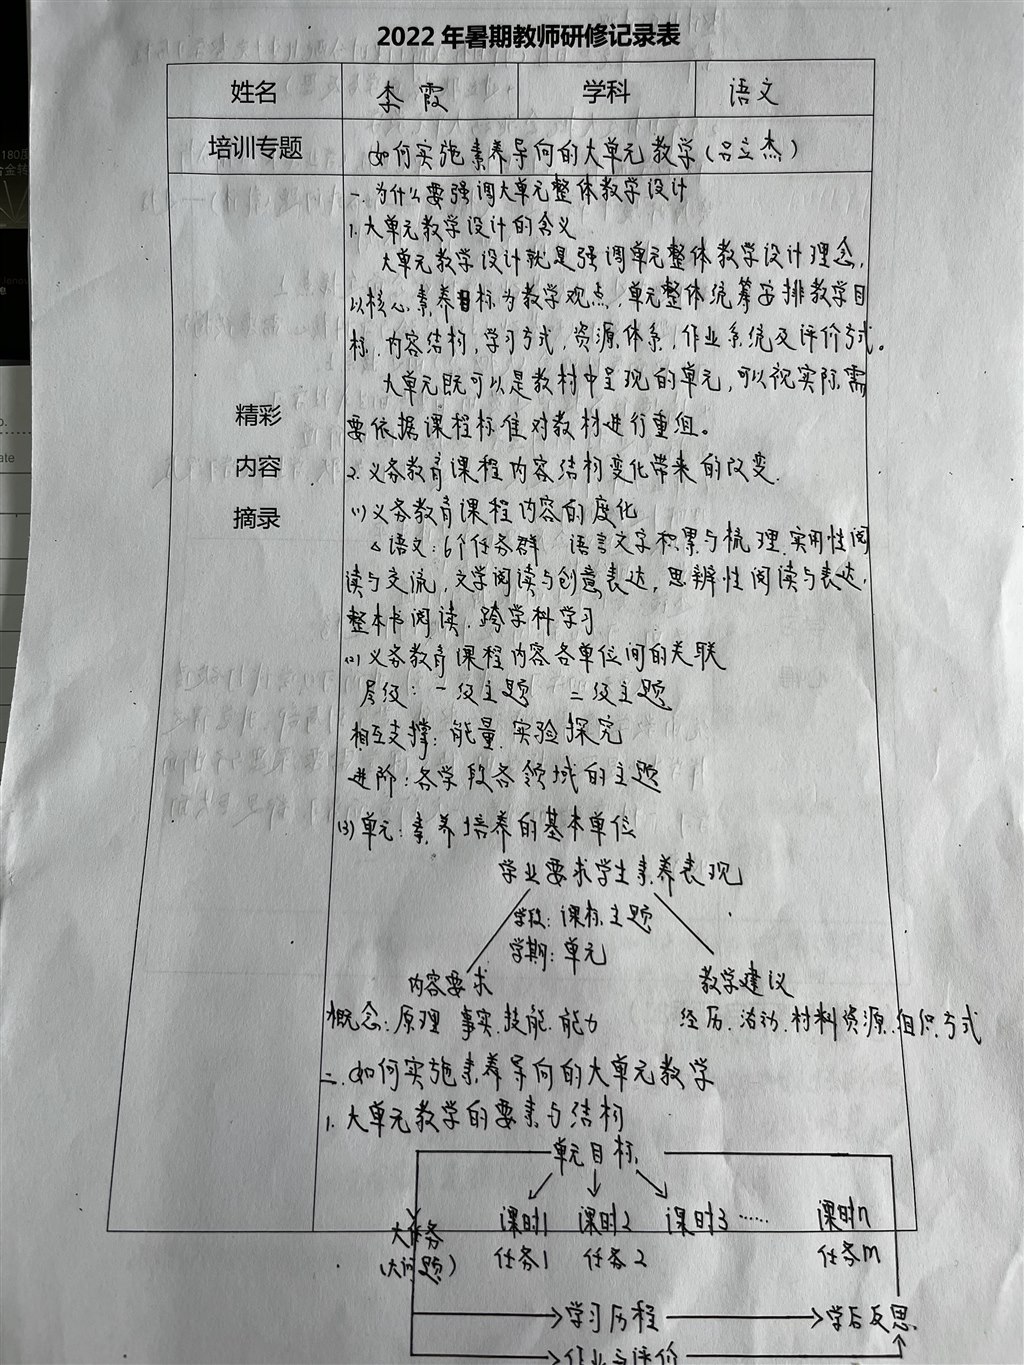 2022 年暑期教师研修记录表
姓名 李霞 学科 语文
培训专题 如何实施素养导向的大单元教学(吕立杰)
精彩
内容
摘录
一.为什么要强调大单元整体教学设计
1.大单元教学设计的含义
大单元教学设计就是强调单元整体教学设计理念,
以核心素养目标为教学观点,单元整体统筹安排教学目
标,内容结构,学习方式,资源体系,作业系统及评价方式。
大单元既可以是教材中呈现的单元,可以视实际需
要依据课程标准对教材进行重组。
2.义务教育课程内容结构变化带来的改变.
(1)义务教育课程内容的变化
△语文:6个任务群 语言文字积累与梳理.实用性阅
读与交流,文学阅读与创意表达,思辨性阅读与表达,
整本书阅读.跨学科学习
(2)义务教育课程内容各单位间的关联
层级:一级主题 二级主题
相互支撑:能量.实验探究
进阶:各学段各领域的主题
(3)单元:素养培养的基本单位
学业要求学生素养表现
学段:课标.主题
学期:单元
内容要求 教学建议
概念:原理 事实.技能.能力 经历.活动.材料资源.组织方式
二.如何实施素养导向的大单元教学
1.大单元教学的要素与结构
单元目标
大任务 课时1 课时2 课时3 …… 课时n
(大问题) 任务1 任务2 任务m
学习历程 学后反思
作业与评价